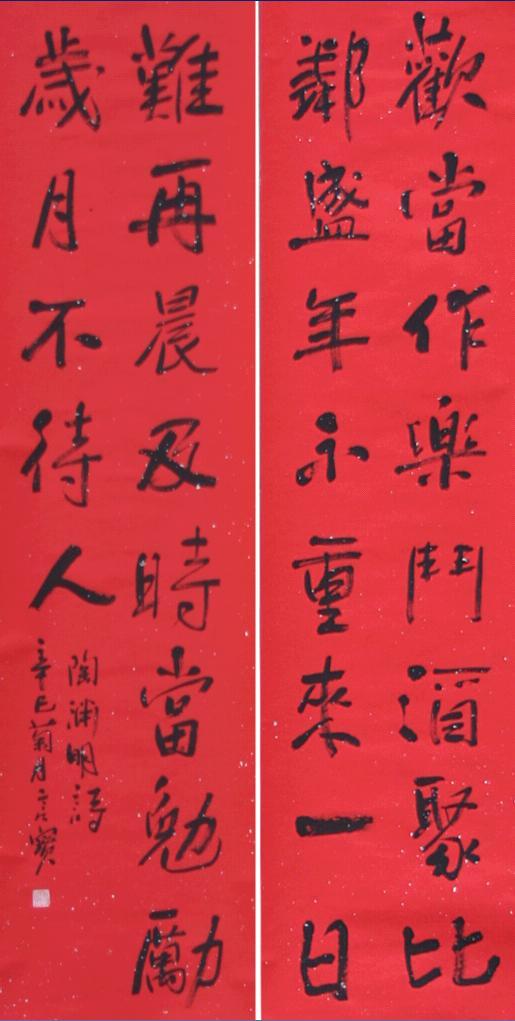 歡當作樂鬥酒聚比
鄰盛年不重來一日
難再晨及時當勉勵
歲月不待人
陶淵明詩
辛巳菊月言寶